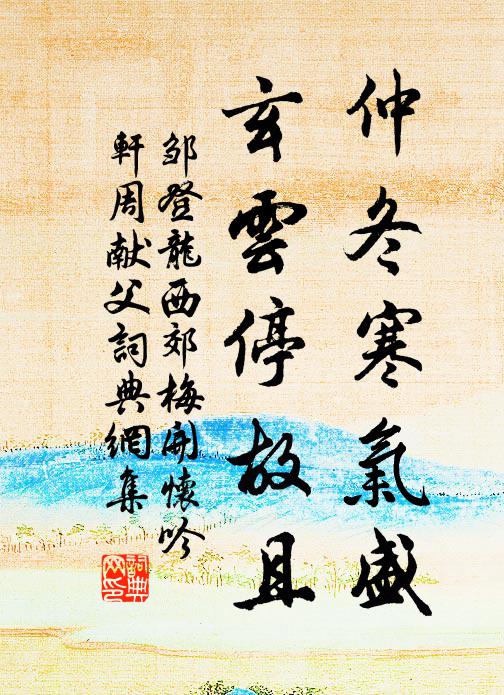 仲冬寒氣盛
玄雲停故且
邹登龍西郊梅開懷吟
軒周献父詞典網集
詞典
网印